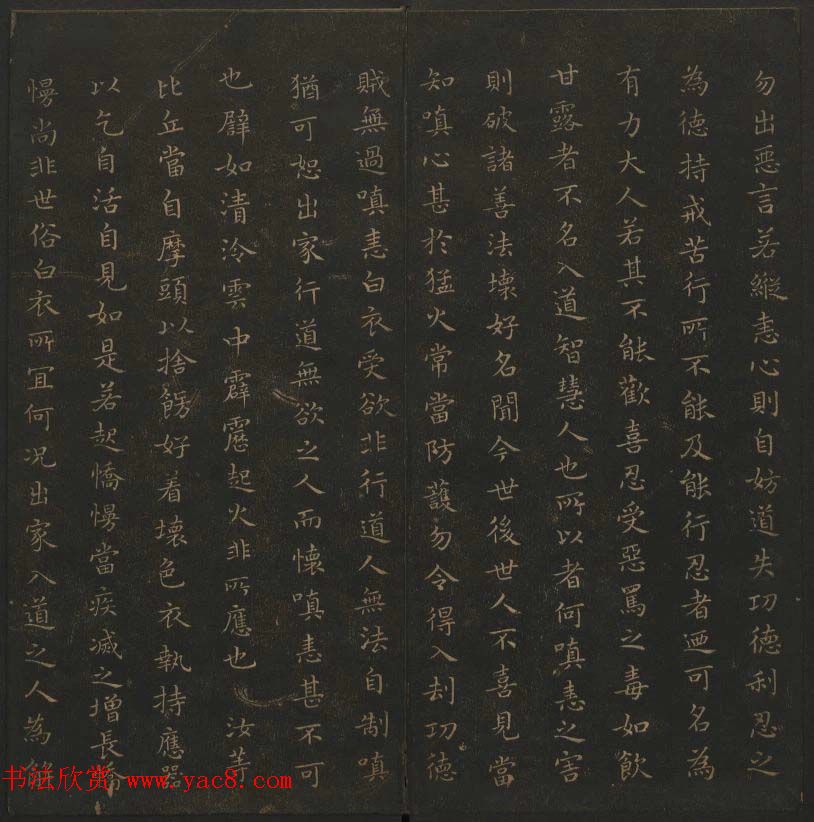 勿出惡言若縱恚心則自妨道失功德利忍之
為德持戒苦行所不能及能行忍者迺可名為
有力大人若其不能歡喜忍受惡罵之毒如飲
甘露者不名入道智慧人也所以者何嗔恚之害
則破諸善法壞好名聞今世後世人不喜見當
知嗔心甚於猛火常當防護勿令得入刦功德
賊無過嗔恚白衣受欲非行道人無法自制嗔
猶可恕出家行道無欲之人而懷嗔恚甚不可
也譬如清泠雲中霹靂起火非所應也 汝等
比丘當自摩頭以捨餝好着壞色衣執持應器
以乞自活自見如是若起憍慢當疾滅之增長憍
慢尚非世俗白衣所宜何况出家入道之人為解
书法欣赏 www.yac8.com